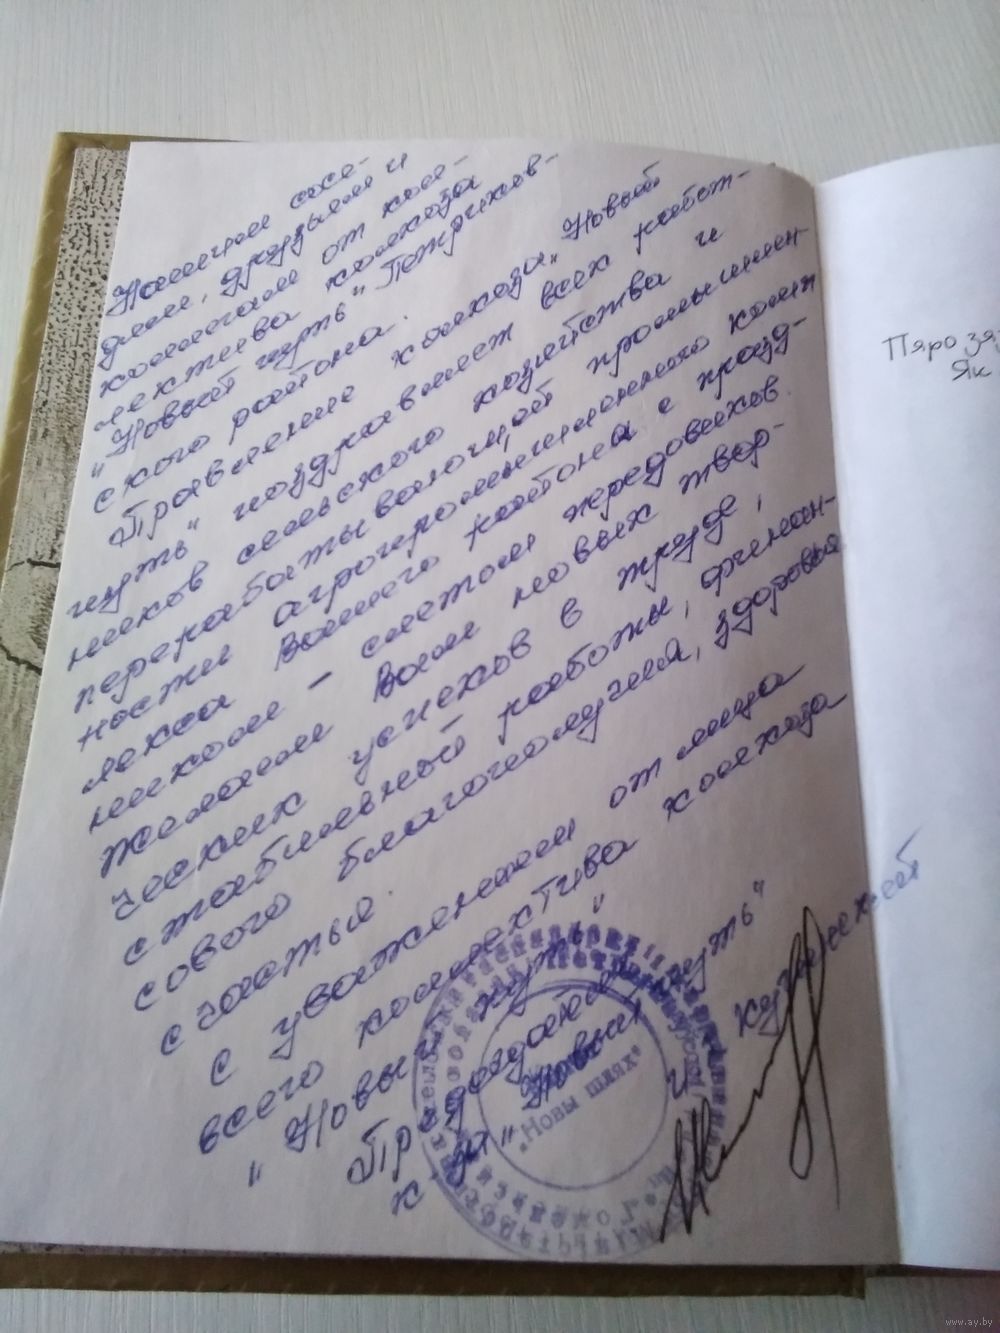 Нашим сосе-
дям, друзьям и
коллегам от кол-
лектива колхоза
"Новый путь" Петриков-
ского района.
Правление колхоза "Новый
путь" поздравляет всех работ-
ников сельского хозяйства и
перерабатывающей промышлен-
ности агропромышленного комп
лекса Вашего района с празд-
ником - слётом передовиков.
Желаем Вам новых твор-
ческих успехов в труде,
стабильной работы, финан-
сового благополучия, здоровья
счастья.
С уважением от лица
всего коллектива колхоза
"Новый путь"
Председатель
к-за "Новый путь"
"Новы шлях"
Пяро
Як
www.ay.by